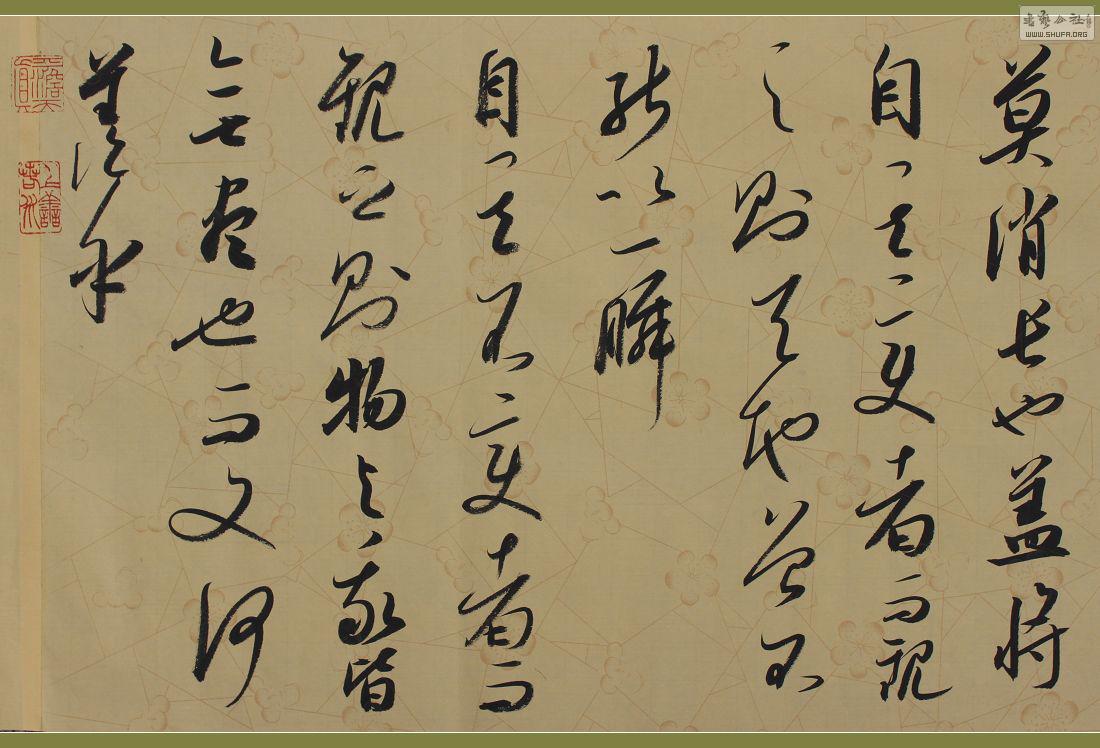 莫消長也蓋將
自其變者而觀
之則天地曾不
能以一瞬
自其不變者而
觀之則物與我皆
無盡也而又何
羨乎
上善若水
書藝公社
WWW.SHUFA.ORG